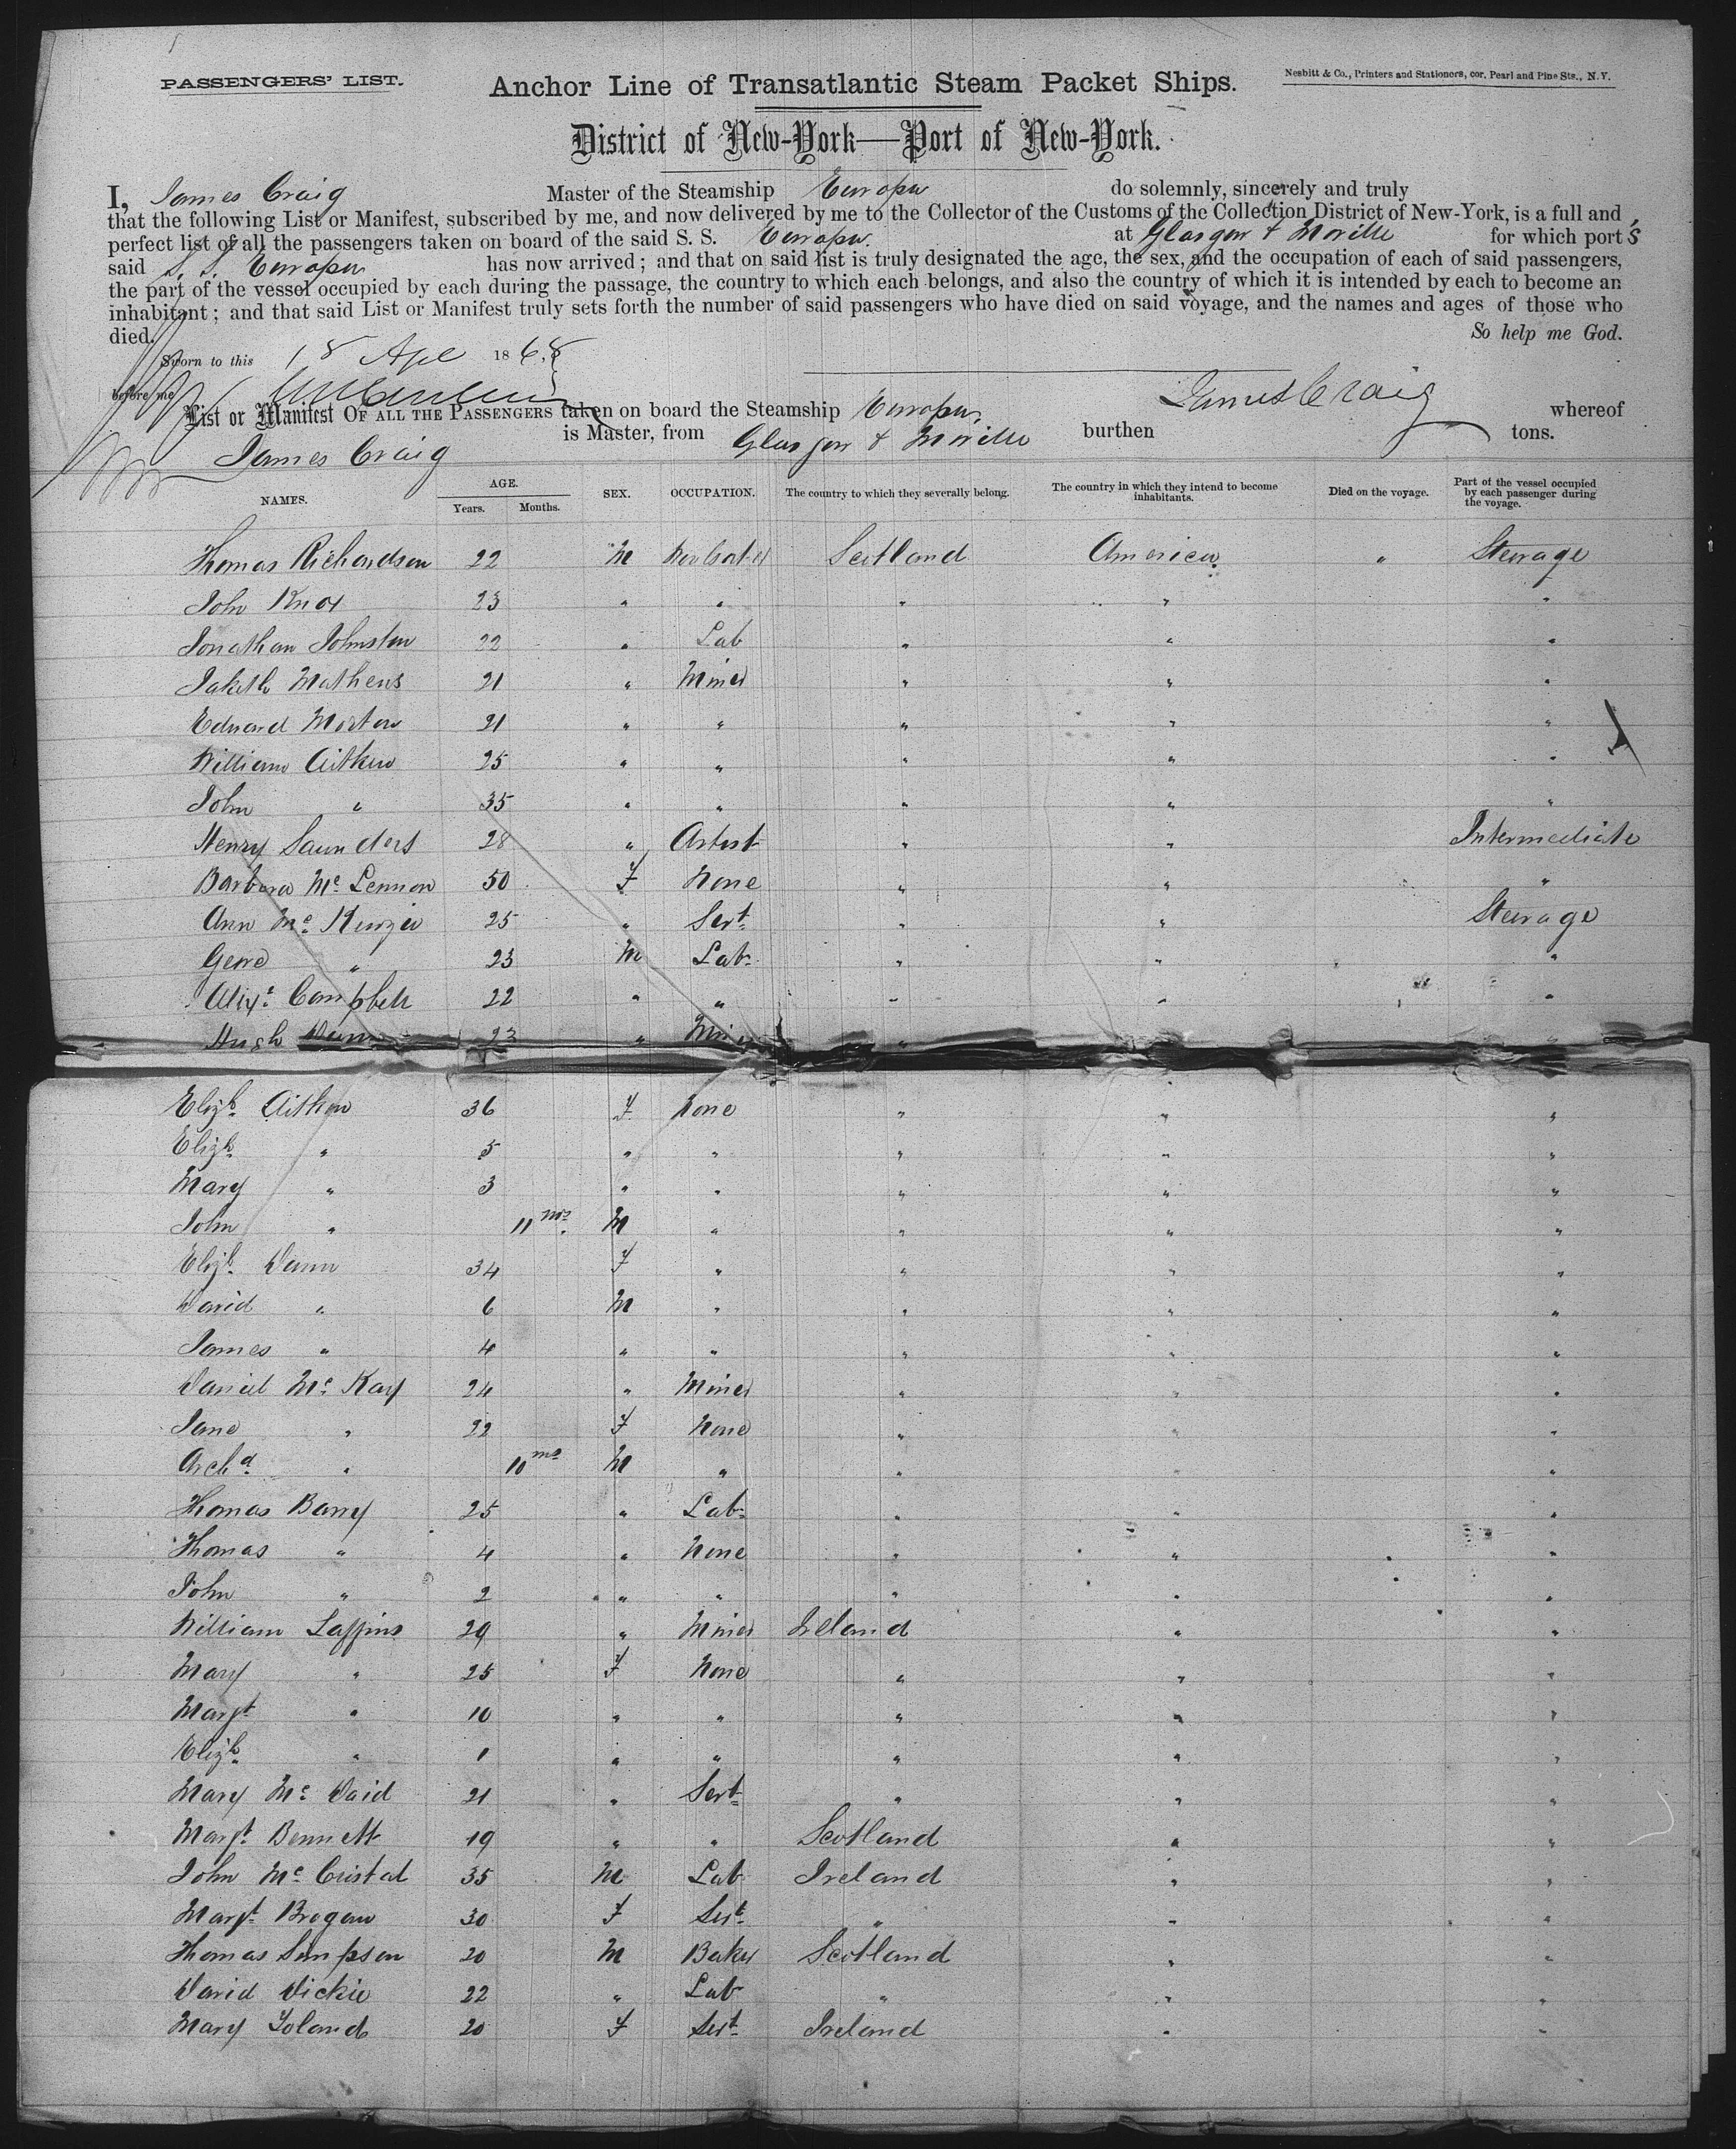 PASSENGERS' LIST.
Anchor Line of Transatlantic Steam Packet Ships.
Nesbitt & Co., Printers and Stationers, cor. Pearl and Pine Sts., N.Y.
District of New-York—Port of New-York.
I, James Craig Master of the Steamship Europa do solemnly, sincerely and truly
that the following List or Manifest, subscribed by me, and now delivered by me to the Collector of the Customs of the Collection District of New-York, is a full and
perfect list of all the passengers taken on board of the said S. S. Europa at Glasgow & Moville for which port s
said S. S. Europa has now arrived; and that on said list is truly designated the age, the sex, and the occupation of each of said passengers,
the part of the vessel occupied by each during the passage, the country to which each belongs, and also the country of which it is intended by each to become an
inhabitant; and that said List or Manifest truly sets forth the number of said passengers who have died on said voyage, and the names and ages of those who
died. So help me God.
Sworn to this 18 Apl 1868
before me James Craig
List or Manifest OF ALL THE PASSENGERS taken on board the Steamship Europa whereof
James Craig is Master, from Glasgow & Moville burthen tons.
NAMES. AGE. Years. Months. SEX. OCCUPATION. The country to which they severally belong. The country in which they intend to become inhabitants. Died on the voyage. Part of the vessel occupied by each passenger during the voyage.
Thomas Richardson 22 M Scotland America " Steerage
John Knox 23 " " " " "
Jonathan Johnston 22 " Lab " " "
Mathews 21 " Miner " " "
Edward Morton 21 " " " " "
William Aitken 25 " " " " "
John " 35 " " " " "
Henry Saunders 28 " Artist " " Intermediate
Barbara Mc Lennon 50 F None " " "
Ann Mc Kenzie 25 " Servt " " Steerage
" 23 M Lab. " " "
Alexr. Campbell 22 " " " " "
Hugh Dunn 23 " Miner " "
Elizh. Aitken 36 F None " " "
Elizh. " 5 " " " " "
Mary " 3 " " " " "
John " 11 mos. M " " " "
Elizh. Dunn 34 F " " " "
David " 6 M " " " "
James " 4 " " " " "
Daniel Mc Kay 24 " Miner " " "
Jane " 22 F None " " "
Archd. " 10 mos M " " " "
Thomas Barry 25 " Lab. " " "
Thomas " 4 " None " " "
John " 2 " " " " "
William Laffins 29 " Miner Ireland " "
Mary " 25 F None " " "
Margt " 10 " " " " "
Elizh. " 1 " " " " "
Mary Mc Daid 21 " Servt. " " "
Margt. Bennett 19 " " Scotland " "
John Mc Cristal 35 M Lab Ireland " "
Margt. Brogan 30 F Servt. " " "
Thomas Simpson 20 M Baker Scotland " "
David Dickie 22 " Lab " " "
Mary Toland 20 F Servt. Ireland " "